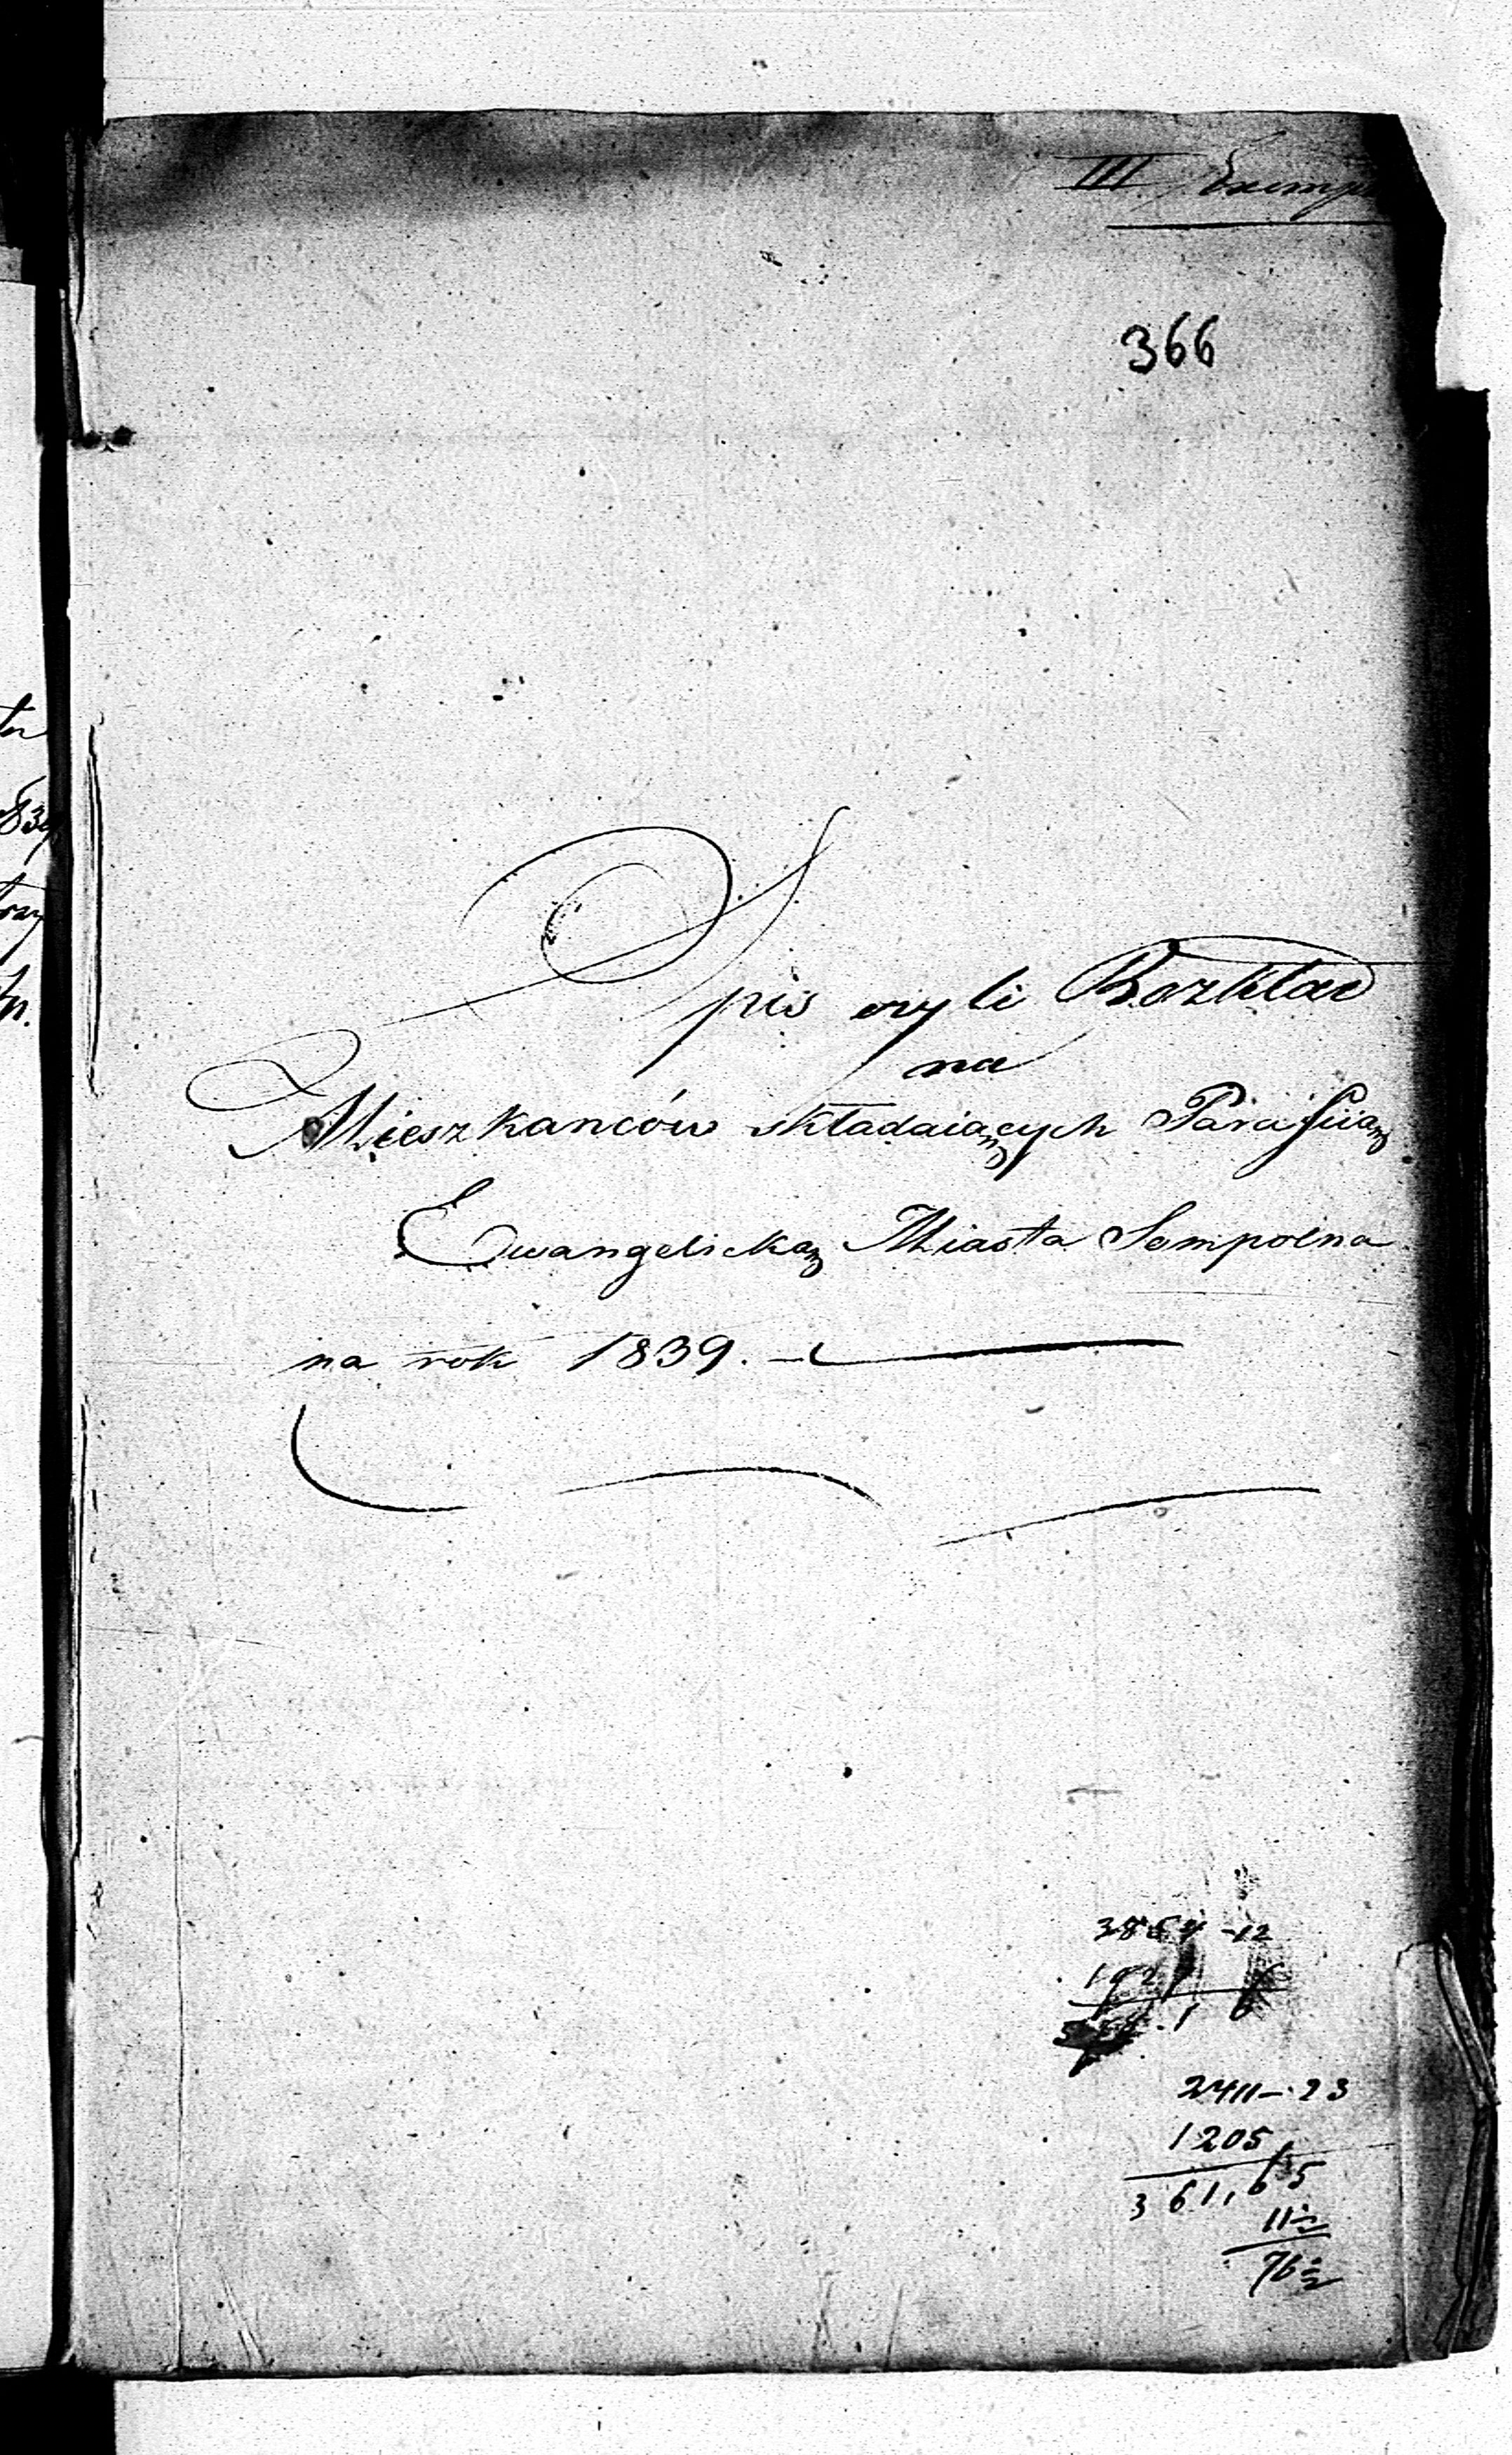 III. Exemp
366
Spis czyli Rozkład
na
Mieszkanców składaiących Parafiią
Ewangelicką Miasta Sempolna
na rok 1839. —
3854 -12
2411 - 23
1205
361, 65
11½
76½